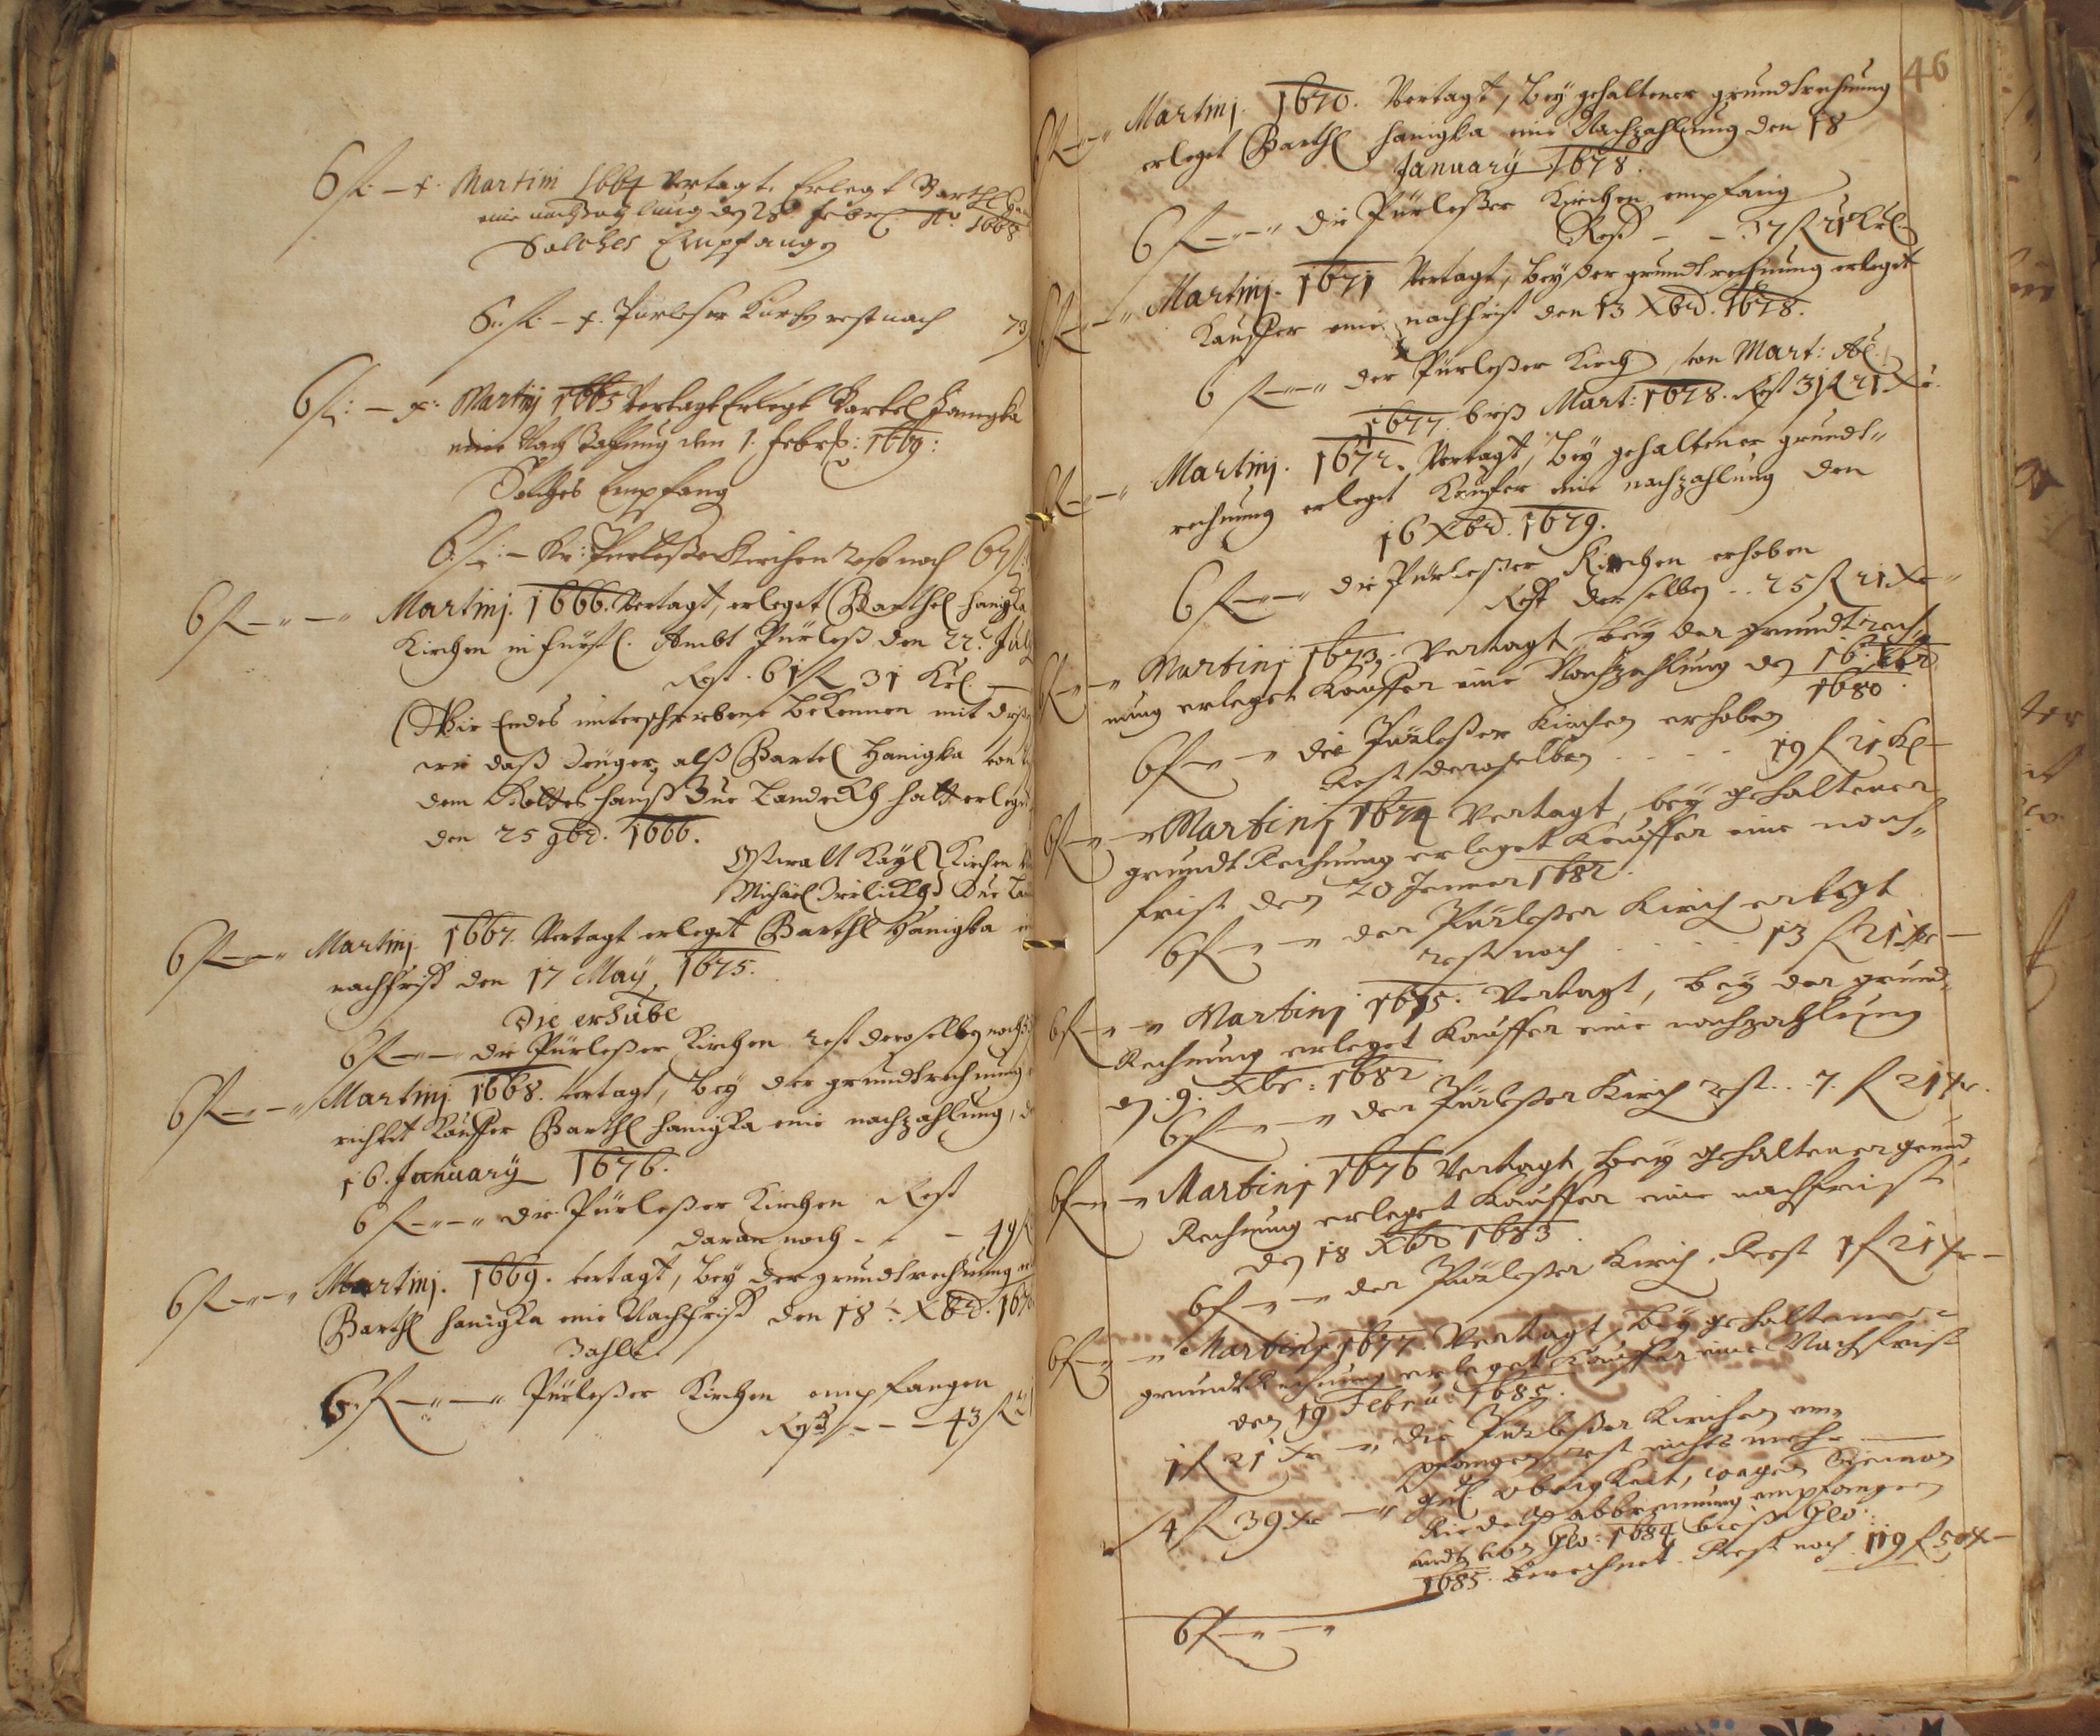 6 fl. – x. Martini 1664 Vertagt. Erlegt Barthel
eine nachzahlung den 28. Febr. Ao. 1668
Solches Empfangen
6 fl. – x. Pürleser Kirch rest nach 73
6 fl: – x: Martinj 1665 Vertagt Erlegt Bartel Hanigka
eine Nach Zahlung den 1. Febr: 1669:
Solches Empfang
6 fl: – Kr: Kirchen rest nach 67 fl
6 fl – " – " Martinj. 1666. Vertagt, erleget Barthel Hanigka
Kirchen in Fürstl. Ambt Pürleß den 22. July
Rest. 61 fl 31 Krl.
Wir Endes unterschriebene bekennen mit
wie daß Zeuger, alß Bartel Hanigka von
dem Gotteshauß Zue Landeckh hatt erleget
den 25 9br. 1666.
Oßwalt Käyl Kirchen
Michael Zue
6 fl – " – " Martinj. 1667. Vertagt erleget Barthl Hanigka
nachfrist den 17 May, 1675.
Die erhube
6 fl – " – die Pürleßer Kirchen rest deroselben noch
6 fl – " – " Martinj. 1668. vertagt, bey der grundtrechnung
richtet Kauffer Barthl Hanigka eine nachzahlung, d
16. January 1676.
6 fl – " – " die Pürleßer Kirchen Rest
daran noch – – – 49 fl
6 fl – " – " Martinj. 1669. vertagt, bey der grundtrechnung
Barthl Hanigka eine Nachfrist den 18. Xbr. 167
Zahlt.
6 fl – " – " Pürleßer Kirchen empfangen
Rest – – – 43 fl 21
46
6 fl – " – " Martinj. 1670. Vertagt, bey gehaltener grundtrechnung
erleget Barthl Hanigka eine Nachzahlung den 18
January 1678.
6 fl – " – " die Pürleßer Kirchen empfang
Rest – – . 37 fl 21 Krl
6 fl – " – " Martinj. 1671 Vertagt, bey der grundtrechnung erleget
Kauffer eine nachfrist den 13 Xbr. 1678.
6 fl – " – " der Pürleßer Kirch, von Mart:
1677. biß Mart: 1678. Rest 31 fl 21 Xr.
6 fl – " – " Martinj. 1672. Vertagt, bey gehaltener grundt
rechnung erleget Kauffer eine nachzahlung den
16 Xbr. 1679.
6 fl – " – " die Pürleßer Kirchen erhoben
Rest derselben . . 25 fl 21 Xr
6 fl – " – " Martinj 1673. Vertagt, bey der grundtrech
nung erleget Kauffer eine Nachzahlung den 16. Xbr
1680.
6 fl – " – " die Pürleßer Kirchen erhoben
Rest deroselben . . . 19 fl 21 Kl
6 fl – " – " Martinj 1674 Vertagt, bey gehaltener
grundt Rechnung erleget Kauffer eine nach
frist den 20 Jener 1682.
6 fl – " – " der Pürleßer Kirch erlegt
rest noch . . . . 13 fl 21 xr
6 fl – " – " Martinj 1675. Vertagt, bey der grund
Rechnung erleget Kauffer eine nachzahlung
den 9. Xbr: 1682.
6 fl – " – " der Pürleßer Kirch rest . . 7 fl 21 xr.
6 fl – " – " Martinj 1676 Vertagt, bey gehaltener grund
Rechnung erleget Kauffer eine nachfrist
den 18 Xbr 1683.
6 fl – " – " der Pürleßer Kirch, Rest 1 fl 21 xr
6 fl – " – " Martinj 1677. Vertagt, bey gehaltener
grundt Rechnung erleget Kauffer eine Nachfrist
den 19 Febru: 1685.
1 fl 21 xr – " die Pürleßer Kirchen em
pfangen rest nichts mehr
4 fl 39 xr – " gnd. obrigkeit, wegen
abbrennung empfangen
von Geo: 1684 bieß Geo:
1685. berechnet. Rest noch 119 fl 50 x
6 fl – " – "